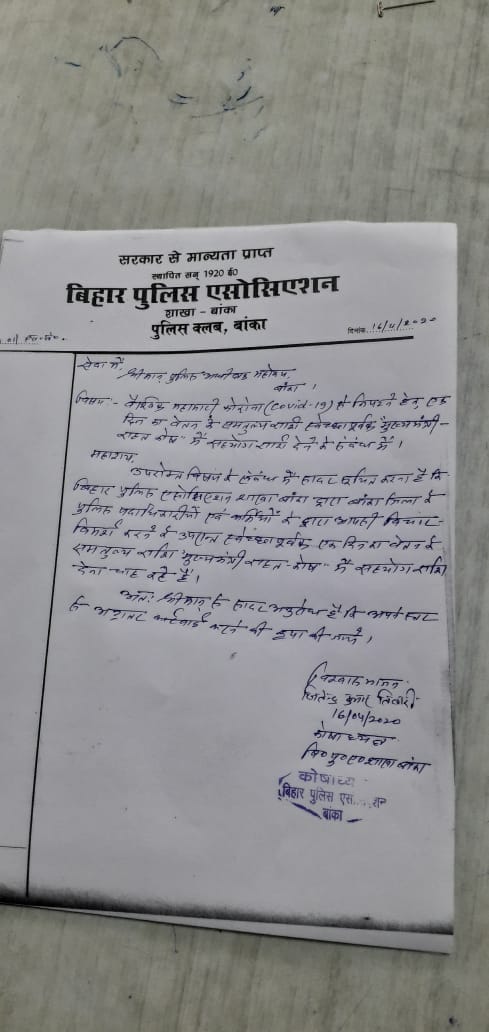 सरकार से मान्यता प्राप्त
स्थापित सन् 1920 ई०
बिहार पुलिस एसोसिएशन
शाखा - बांका
पुलिस क्लब, बांका
दिनांक 16/4/2020
सेवा में,
श्रीमान् पुलिस अधीक्षक महोदय,
बांका।
विषय :- वैश्विक महामारी कोरोना (Covid-19) से निपटने हेतु एक
दिन का वेतन के समतुल्य राशी स्वेच्छापूर्वक "मुख्यमंत्री-
राहत कोष" में सहयोग राशी देने के संबंध में।
महाशय,
उपरोक्त विषय के संबंध में सादर सूचित करना है कि
बिहार पुलिस एसोसिएशन शाखा बांका द्वारा बांका जिला के
पुलिस पदाधिकारीयों एवं कर्मियों के द्वारा आपसी विचार-
विमर्श करने के उपरान्त स्वेच्छापूर्वक एक दिन का वेतन के
समतुल्य राशि "मुख्यमंत्री राहत-कोष" में सहयोग राशि
देना चाह रहे हैं।
अतः श्रीमान् से सादर अनुरोध है कि अपने स्तर
से अग्रेतर कार्रवाई करने की कृपा की जाय।
विश्वास भाजन
जितेन्द्र कुमार तिवारी
16/04/2020
कोषाध्यक्ष
बि० पु० ए० शाखा बांका
कोषाध्य
बिहार पुलिस एस
बांका